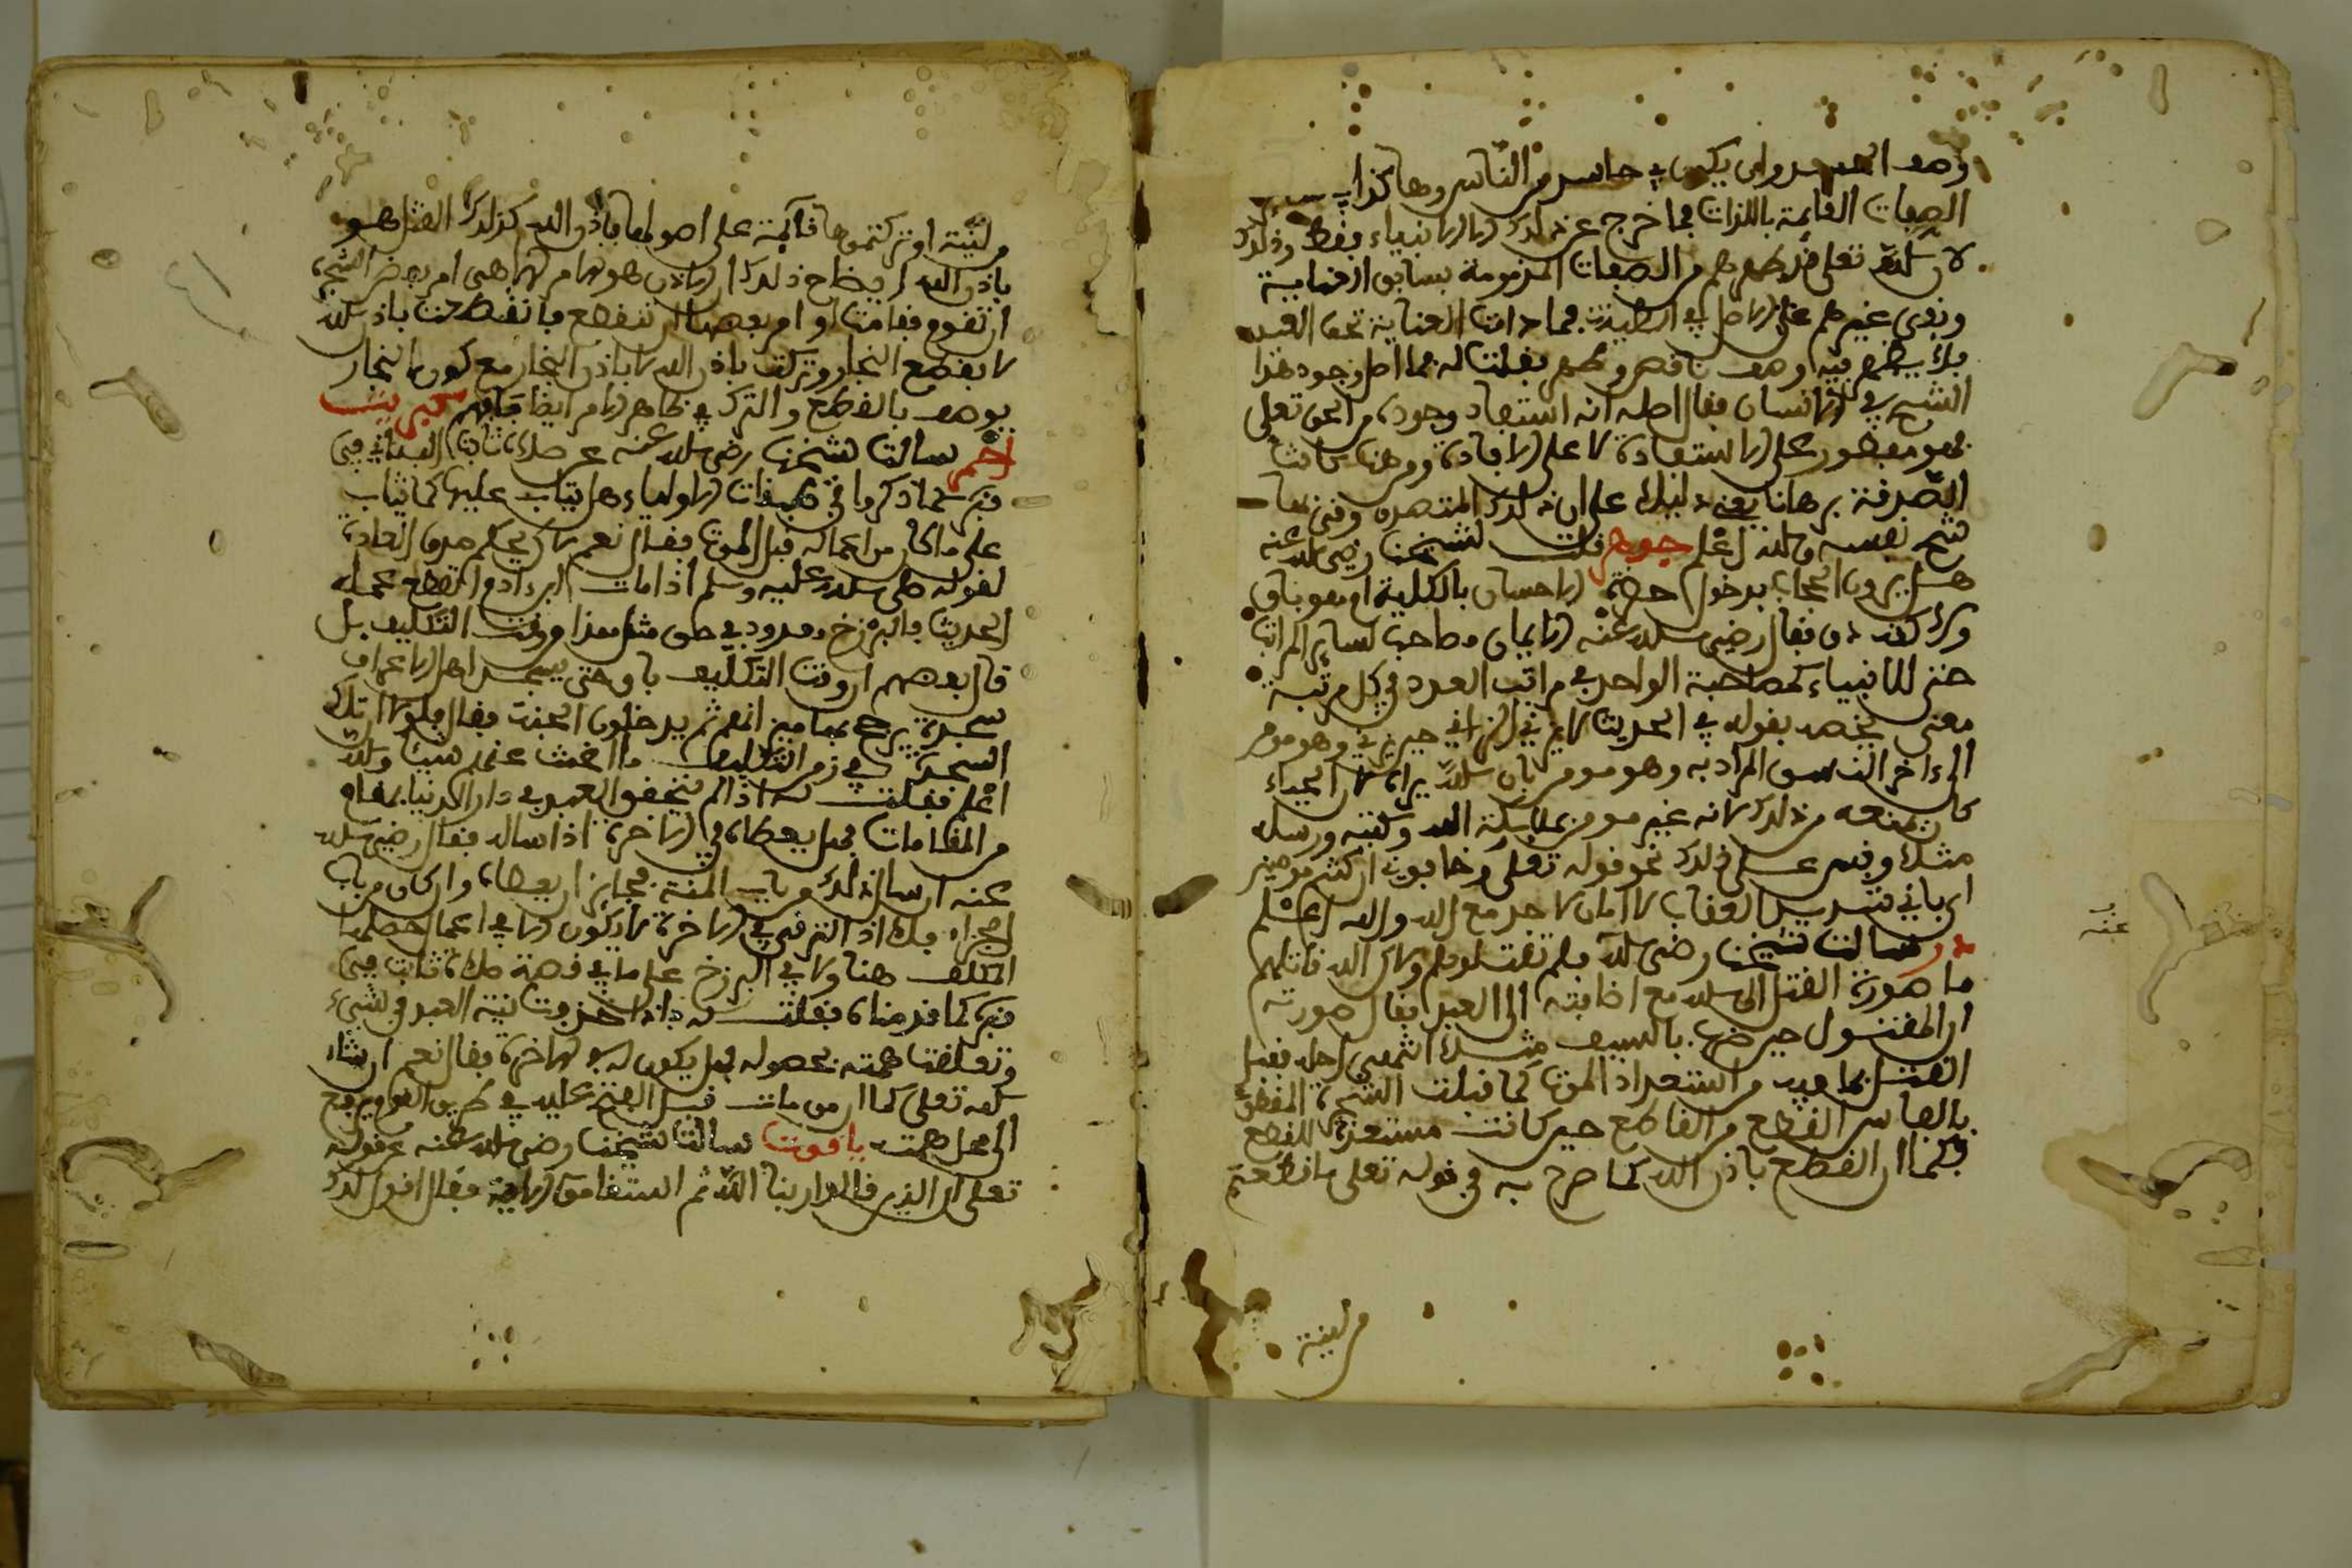 وصف الحسد وان يكون في حاسد من الناس وهاكذا في سائر
الصفات القائمة بالذات فما خرج عن ذلك الا الانبياء فقط وذلك
لان الله تعلى طهرهم من الصفات المذمومة بسابق العناية
وبقي غيرهم على الاصل في الطينة فما دامت العناية تحف العبد
فلا يظهر فيه وصف ناقص وطهر فقلت له فما اصل وجود هذا
الشح في الانسان فقال اصله انه استفاد وجوده من الحق تعلى
فهو مفطور على الاستفادة لا على الافادة ومن هنا كانت
الصدقة برهانا يعني دليلا على ان ذلك المتصدق وقي بها
شح نفسه والله اعلم جوهر قلت لشيخنا رضي الله عنه
هل يرون الحجاب بدخول حضرة الاحسان بالكلية او هو باق
ولا كنه دق فقال رضي الله عنه الايمان مصاحب لسائر المراتب
حتى للانبياء كمصاحبة الواحد في مراتب العدد في كل مرتبة
معنى يخصه بقوله في الحديث لا يزني الزاني حين يزني وهو مومن
الى ءاخر النسق المراد به وهو مومن بان الله يراه لان الحياء
كان يمنعه من ذلك لا انه غير مومن بملائكته الله وكتبه ورسله
مثلا وقس على ذلك نحو قوله تعلى وخافون ان كنتم مومنين
اي باني شديد العقاب لا امان لاحد مع الله والله اعلم
در سالت شيخنا رضي الله فلم تقتلوهم ولاكن الله قتلهم
عنه
ما صورة القتل الى الله مع اضافته الى العبد فقال صورته
ان المقتول حين ضربه بالسيف مثلا انتهى اجله فقبل
القتل بما فيه من استعداد الموت كما قبلت الشجرة المقطوعة
بالفاس القطع من القاطع حين كانت مستعدة للقطع
فكما ان القطع باذن الله كما صرح به في قوله تعلى ما قطعتم
من لينة
من لينة او تركتموها قائمة على اصولها فباذن الله كذلك القتل هو
باذن الله ايضاح ذلك ان الاذن هو الامر الالاهي امر بعض الشجرة
ان تقوم فقامت او امر بعضها ان تنقطع فانقطعت باذن الله
لا بقطع النجار وتركت باذن الله لا باذن النجار مع كون النجار
يوصف بالقطع والترك في ظاهر الامر ايضا فافهم كبريت
احمر سالت شيخنا رضي الله عنه عن صلاة ثابت البناني في
قبره كما ذكروا في طبقات الاولياء هل يثاب عليها كما يثاب
على ما كان من اعماله قبل الموت فقال نعم لان يحكم خرق العادة
لقوله صلى الله عليه وسلم اذا مات ابن ءادم انقطع عمله
الحديث فالبرزخ معدود في حق مثل هذا من وقت التكليف بل
قال بعضهم ان وقت التكليف باق حتى يسجد اهل الاعراف
سجدة يرجح بها ميزانهم ثم يدخلون الجنة فقال فلولا ان تلك
السجدة في زمن التكليف ما اغنت عنهم شيئا والله
اعلم فقلت له اذا لم يتحقق العبد في دار الدنيا بمقام
من المقامات فهل يعطاه في الاخرة اذا ساله فقال رضي الله
عنه ان سال ذلك من باب المنة فجائز ان يعطاه وان كان من باب
الجزاء فلا اذ الترقي في الاخرة لا يكون الا في اعمال حصلها
المكلف هنا ولا في البرزخ على ما في قصة صلاة ثابت في
قبره كما قدمناه فقلت له فاذا خرجت نية العبد في شيء
وتعلقت همته بحصوله فهل يكون له في الاخرة فقال نعم ان شاء
الله تعلى كما ان من مات قبل الفتح عليه في طريق القوم يرفع
الى محل همته ياقوت سالت شيخنا رضي الله عنه عن قوله
تعلى ان الذين قالوا ربنا الله ثم استقاموا الاية فقال اقول لك